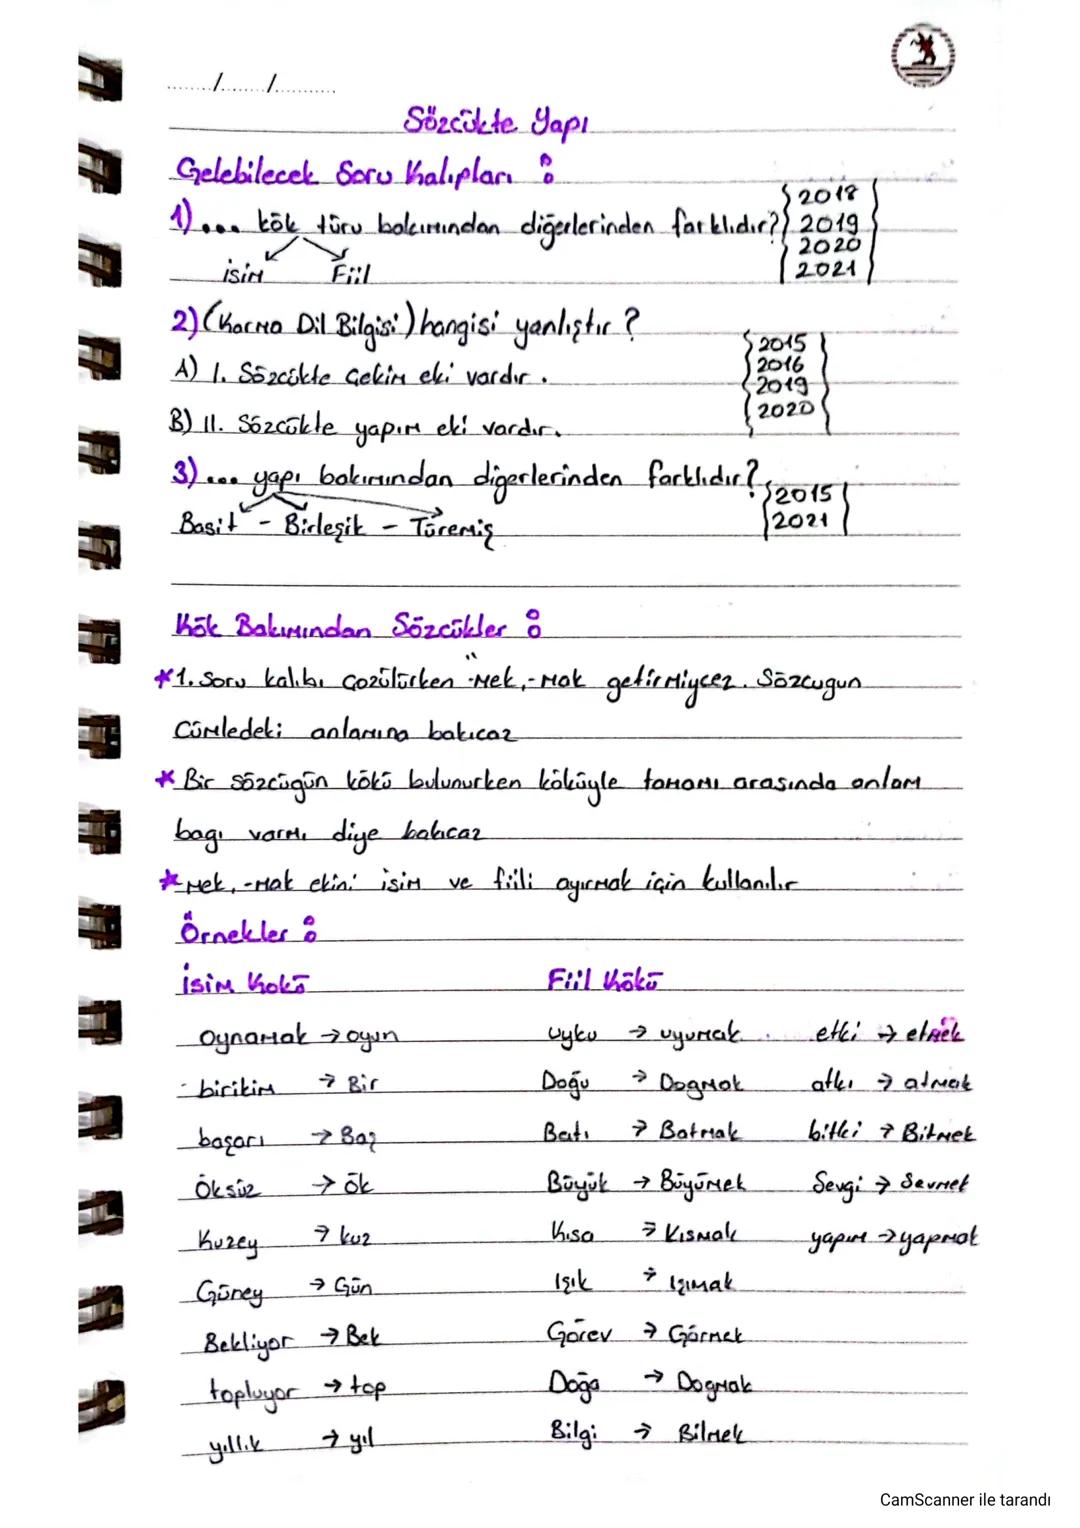 ....../....../............
Sözcükte Yapı
Gelebilecek Soru Kalıpları :
1) ... kök türü bakımından diğerlerinden farklıdır? 2018 2019 2020 2021
isim Fiil
2) (Karma Dil Bilgisi) hangisi yanlıştır ?
A) I. Sözcükte Çekim eki vardır. 2015 2016 2019 2020
B) II. Sözcükte yapım eki vardır.
3) ... yapı bakımından diğerlerinden farklıdır? 2015 2021
Basit - Birleşik - Türemiş
Kök Bakımından Sözcükler :
*1. Soru kalıbı çözülürken "-mek, -mak getirmiycez. Sözcugun
Cümledeki anlamına bakıcaz
* Bir sözcüğün kökü bulunurken köküyle tamamı arasında anlam
bagı varmı diye bakıcaz
* -mek, -mak ekini isim ve fiili ayırmak için kullanılır
Örnekler :
İsim Kökü Fiil Kökü
oynamak → oyun uyku → uyumak etki → etmek
- birikim → Bir Doğu → Dogmak atkı → atmak
başarı → Baş Batı → Batmak bitki → Bitmek
Öksüz → ök Büyük → Büyümek Sevgi → Sevmek
Kuzey → kuz Kısa → Kısmak yapım → yapmak
Güney → Gün Işık → Işımak
Bekliyor → Bek Görev → Görmek
topluyor → top Doğa → Dogmak
yıllık → yıl Bilgi → Bilmek
CamScanner ile tarandı